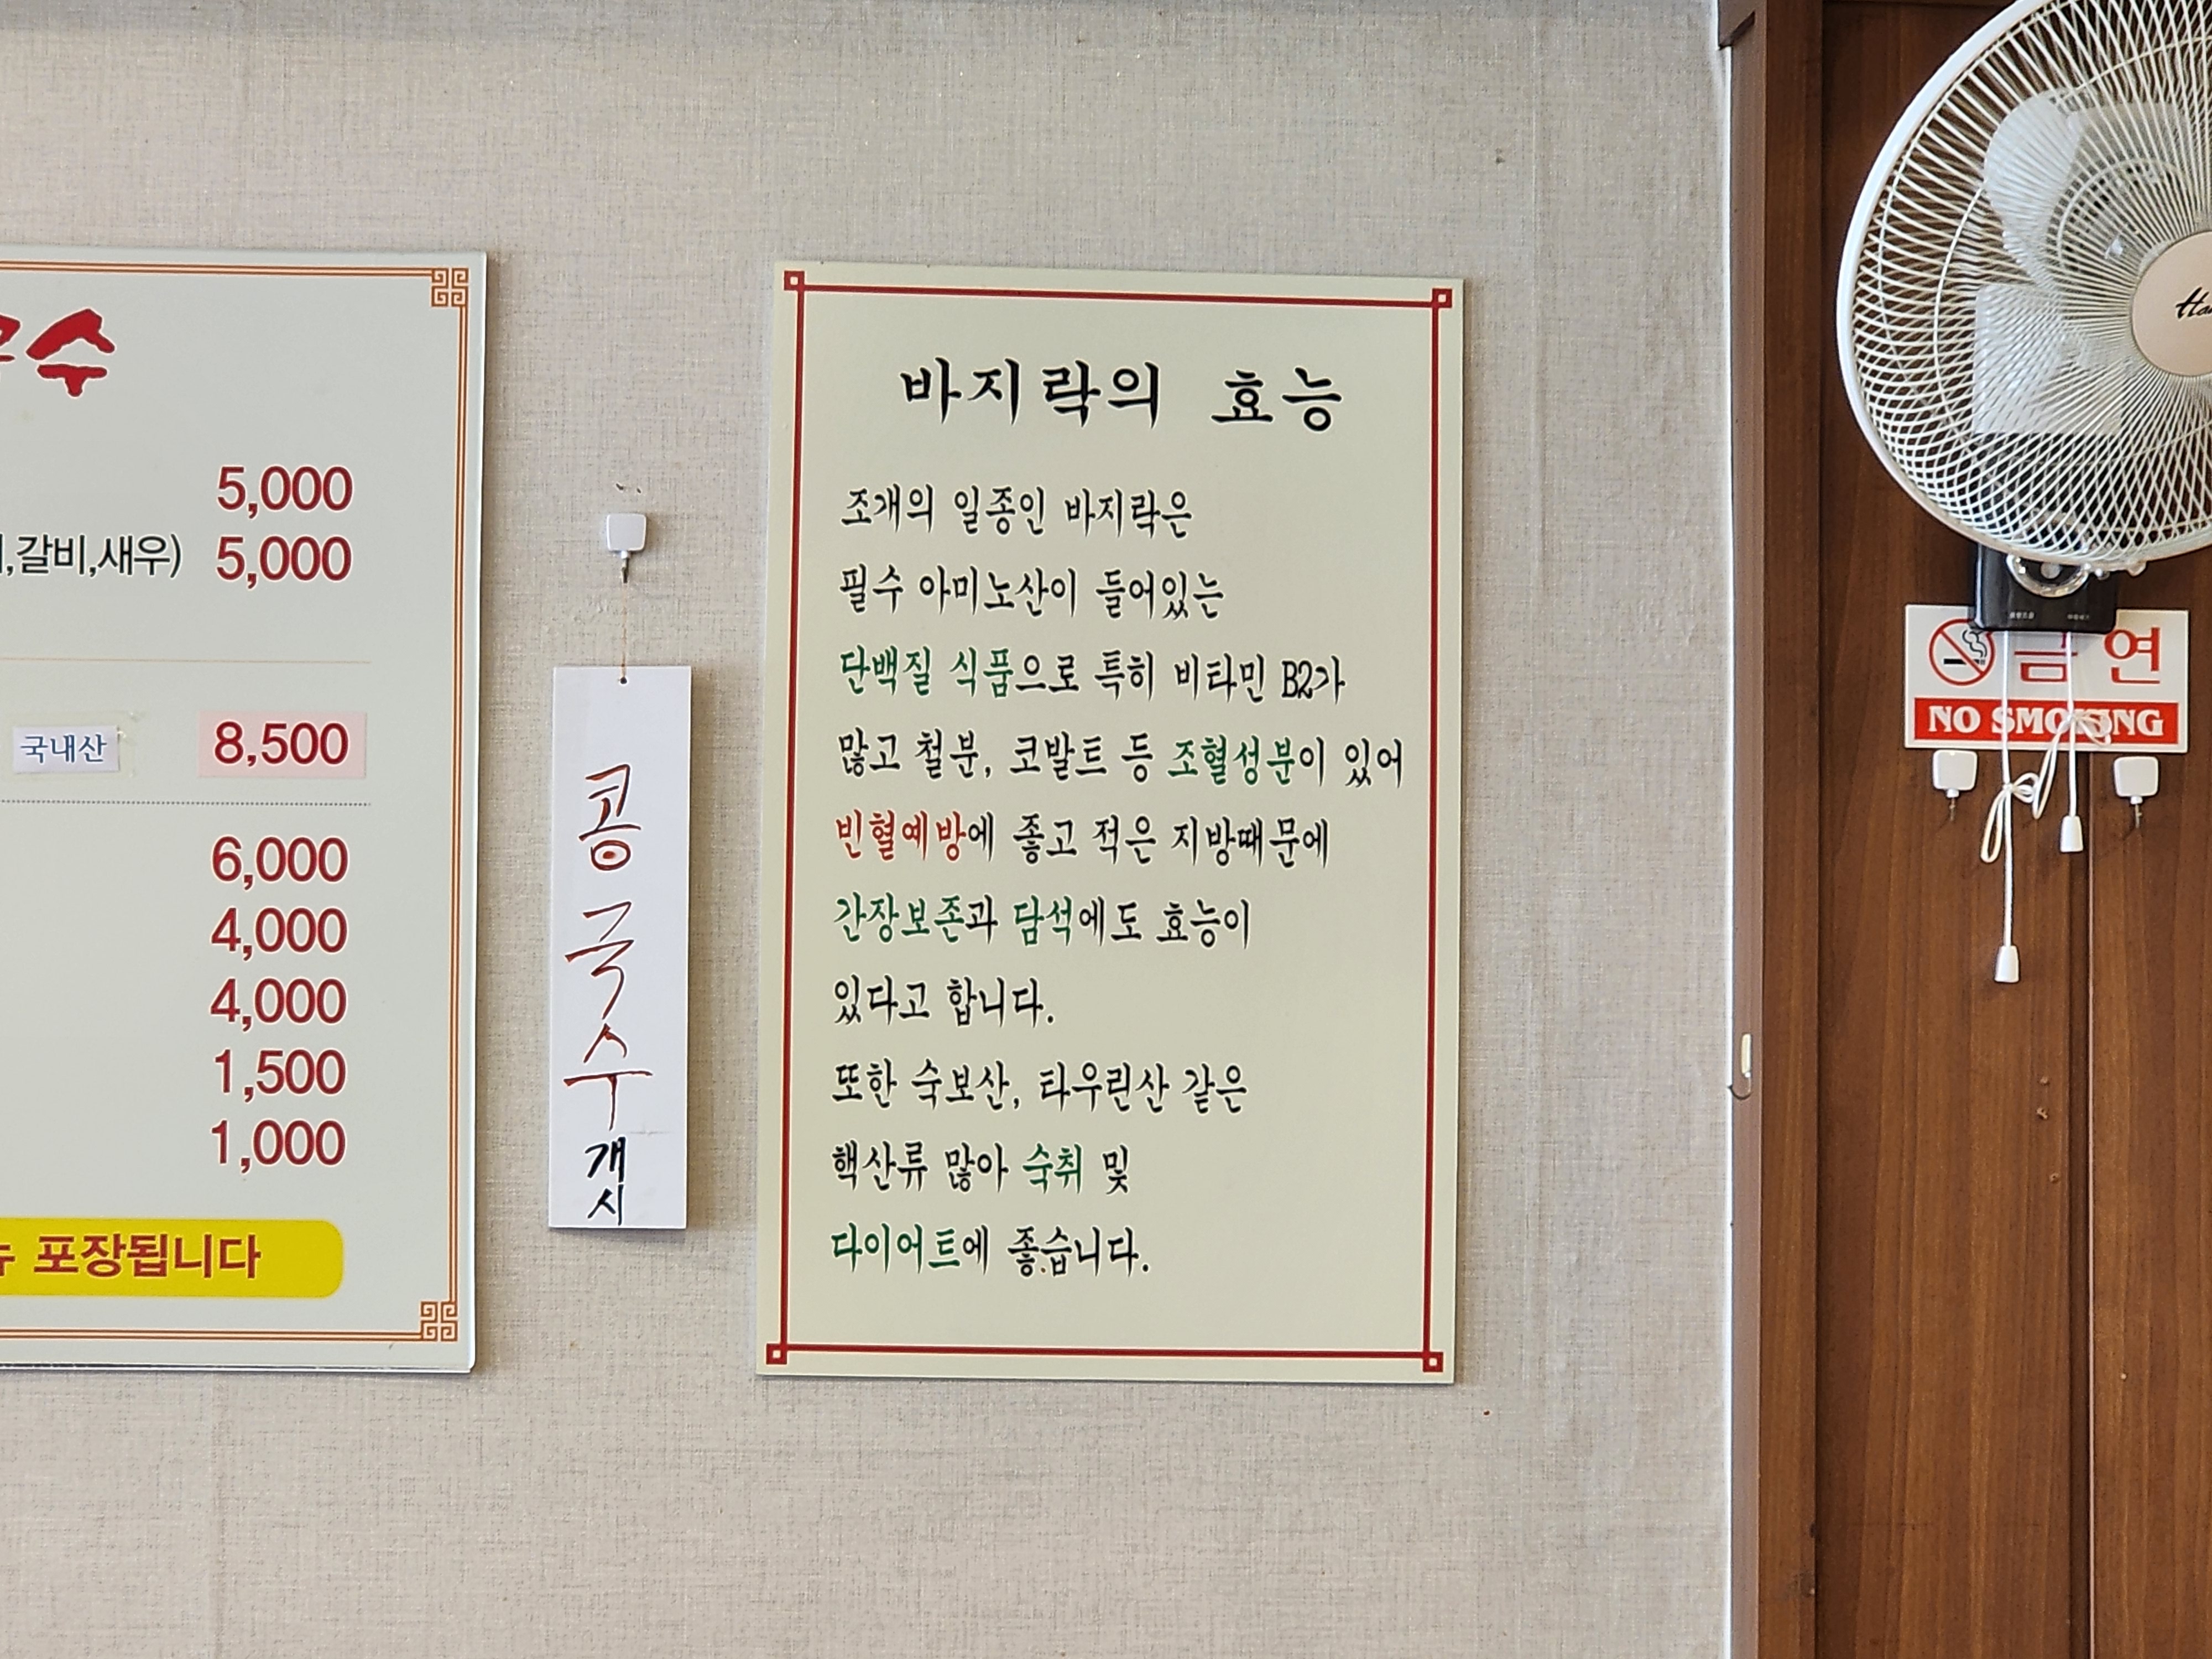 수
5,000
,갈비,새우) 5,000
국내산 8,500
6,000
4,000
4,000
1,500
1,000
포장됩니다
콩국수
개시
바지락의 효능
조개의 일종인 바지락은
필수 아미노산이 들어있는
단백질 식품으로 특히 비타민 B2가
많고 철분, 코발트 등 조혈성분이 있어
빈혈예방에 좋고 적은 지방때문에
간장보존과 담석에도 효능이
있다고 합니다.
또한 숙보산, 타우린산 같은
핵산류 많아 숙취 및
다이어트에 좋습니다.
금연
NO SMOKING